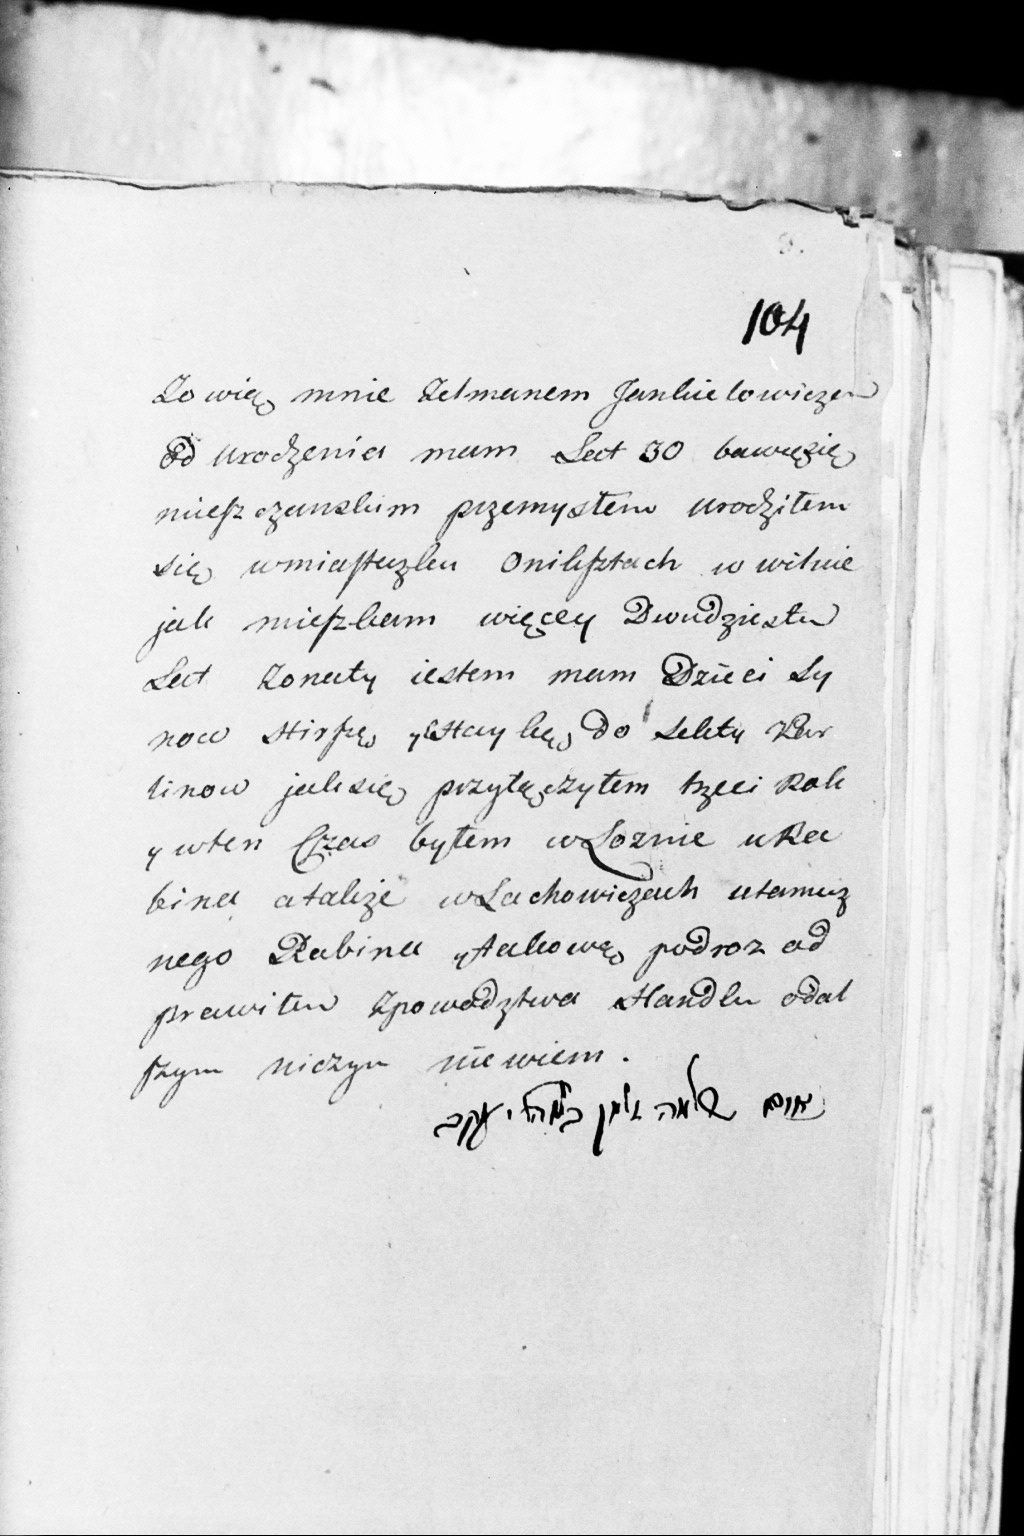 104
Zowią mnie Zelmanem Jankielowiczem
od urodzenia mam Lat 30 bawię się
mieszczanskim przemysłem urodziłem
się w miasteczku Onikſztach w wilnie
jak mieszkam więcey Dwudziestu
Lat Zonaty iestem mam Dzieci Sy
now Hirſzę y Haykę, do sekty Kar
linow jak się przyłączyłem trzeci Rok
y wten Czas byłem w Łoznie u Ra
bina a także w Lachowiczach utamecz
nego Rabina y takową podroz od
prawiłem Zpowodztwa Handlu odal
szym niczym niewiem.
נאום שלמה זלמן יעקב